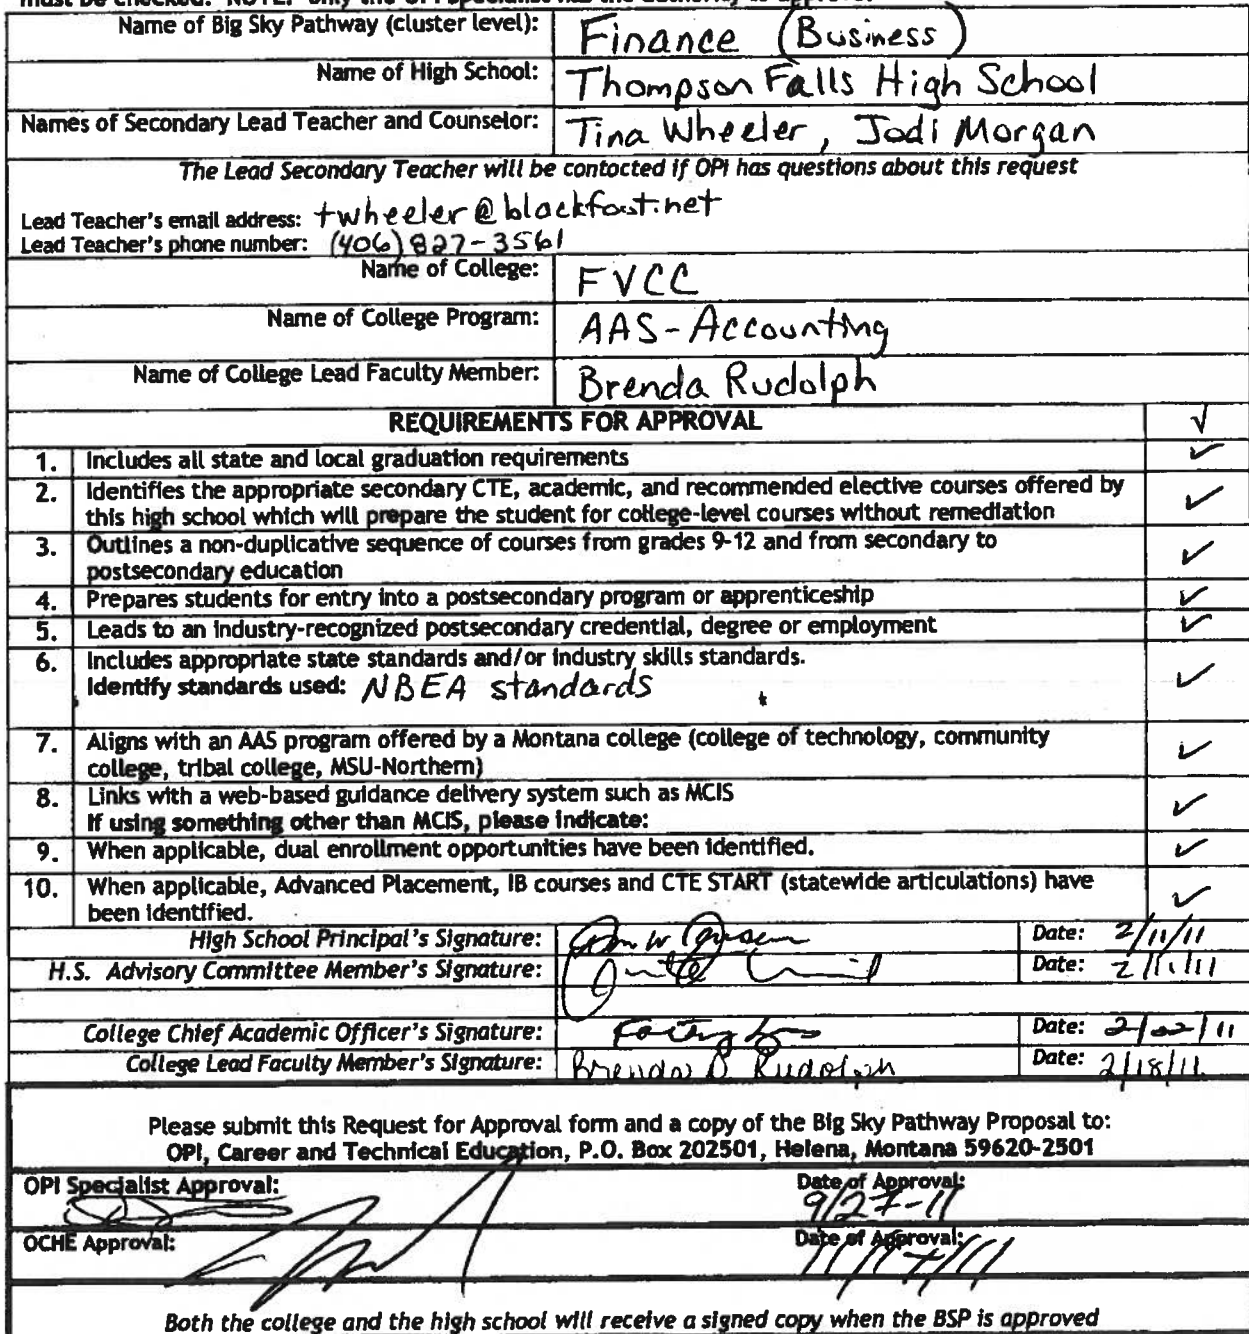 Name of Big Sky Pathway (cluster level): Finance (Business)
Name of High School: Thompson Falls High School
Names of Secondary Lead Teacher and Counselor: Tina Wheeler, Jodi Morgan
The Lead Secondary Teacher will be contacted if OPI has questions about this request
Lead Teacher's email address: twheeler@blackfoot.net
Lead Teacher's phone number: (406)827-3561
Name of College: FVCC
Name of College Program: AAS-Accounting
Name of College Lead Faculty Member: Brenda Rudolph
REQUIREMENTS FOR APPROVAL √
1. Includes all state and local graduation requirements ✓
2. Identifies the appropriate secondary CTE, academic, and recommended elective courses offered by
this high school which will prepare the student for college-level courses without remediation ✓
3. Outlines a non-duplicative sequence of courses from grades 9-12 and from secondary to
postsecondary education ✓
4. Prepares students for entry into a postsecondary program or apprenticeship ✓
5. Leads to an industry-recognized postsecondary credential, degree or employment ✓
6. Includes appropriate state standards and/or industry skills standards.
Identify standards used: NBEA standards ✓
7. Aligns with an AAS program offered by a Montana college (college of technology, community
college, tribal college, MSU-Northern) ✓
8. Links with a web-based guidance delivery system such as MCIS
If using something other than MCIS, please indicate: ✓
9. When applicable, dual enrollment opportunities have been identified. ✓
10. When applicable, Advanced Placement, IB courses and CTE START (statewide articulations) have
been identified. ✓
High School Principal's Signature: Date: 2/11/11
H.S. Advisory Committee Member's Signature: Date: 2/11/11
College Chief Academic Officer's Signature: Date: 2/22/11
College Lead Faculty Member's Signature: Brenda D Rudolph Date: 2/18/11
Please submit this Request for Approval form and a copy of the Big Sky Pathway Proposal to:
OPI, Career and Technical Education, P.O. Box 202501, Helena, Montana 59620-2501
OPI Specialist Approval: Date of Approval:
9/27-11
OCHE Approval: Date of Approval:
11/17/11
Both the college and the high school will receive a signed copy when the BSP is approved